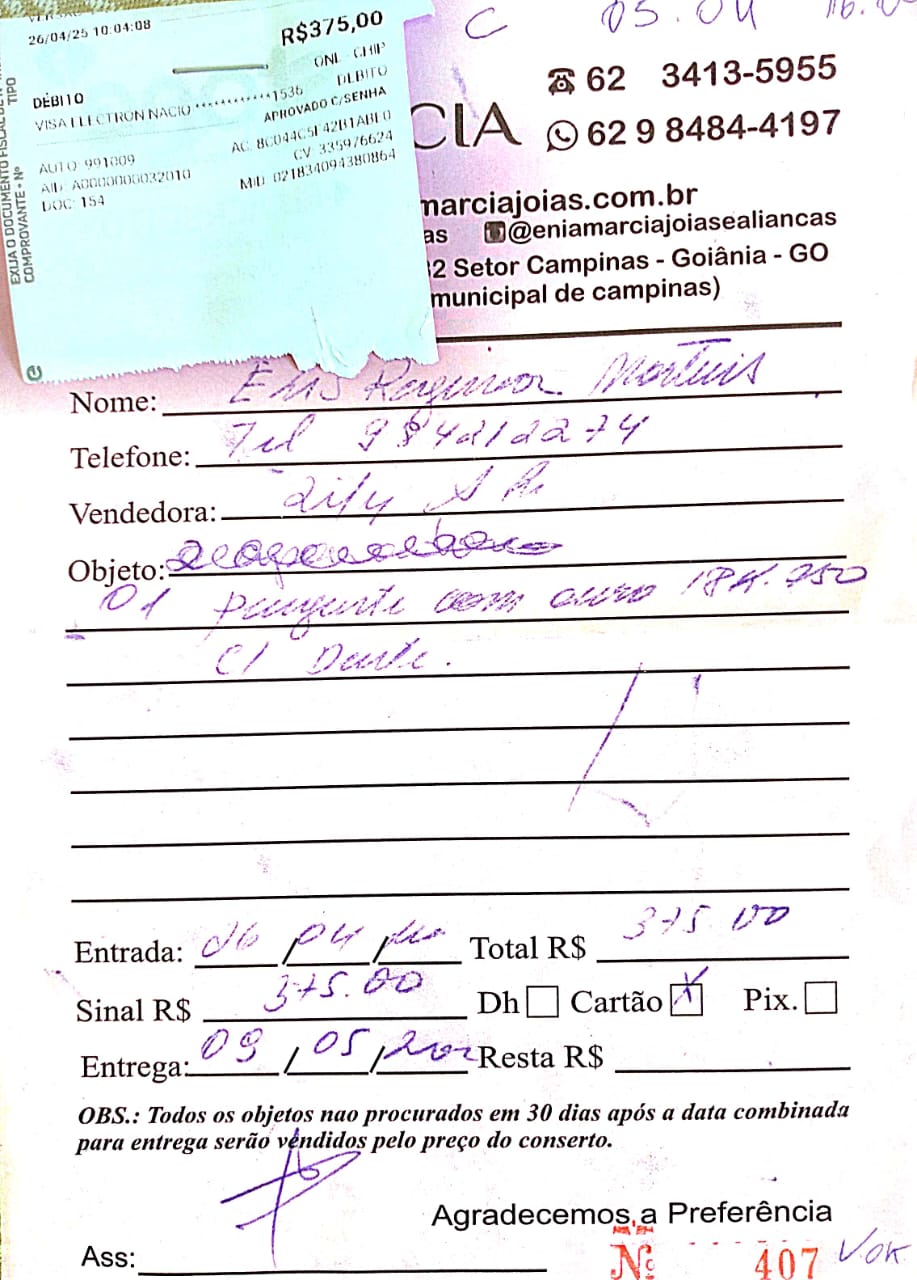 26/04/25 10:04:08
R$375,00
ONL-CHIP
DÉBITO
DEBITO
VISA ELECTRON NACIO ************1536
APROVADO C/SENHA
AUTO: 991009
AC: 8C044C5F42B1ABE0
AID: A0000000032010
CV: 335976624
DOC: 154
MID: 021834094380864
EXIJA O DOCUMENTO FISCAL DE
TIPO
COMPROVANTE • Nº
C 05.04
62 3413-5955
CIA 62 9 8484-4197
marciajoias.com.br
as @eniamarciajoiasealiancas
2 Setor Campinas - Goiânia - GO
municipal de campinas)
Nome:
Telefone: Tel 984212274
Vendedora:
Objeto:
01 pingente com ouro 18K.750
C/ Dente.
Entrada: 04 Total R$ 375.00
Sinal R$ 375.00 Dh Cartão X Pix.
Entrega: 09/05/ Resta R$
OBS.: Todos os objetos nao procurados em 30 dias após a data combinada
para entrega serão vendidos pelo preço do conserto.
Agradecemos a Preferência
Ass:
Nº 407